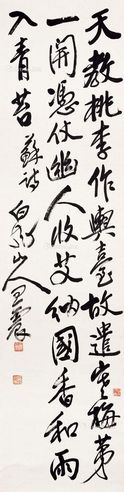 天教桃李作輿臺故遣寒梅第
一開憑仗幽人收艾納國香和雨
入青苔 蘇詩 白蕉山人王震